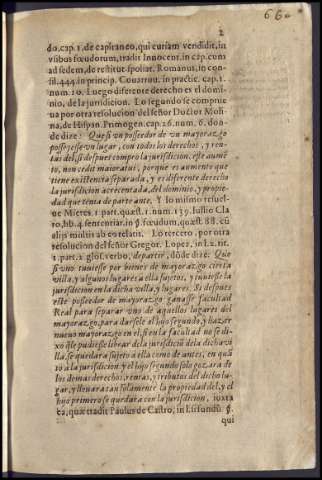 660
2
do, cap. 1. de capitaneo, qui curiam vendidit, in
vsibus fœudorum, tradit Innocent. in cap. cum
ad sedem, de restitut. spoliat. Romanus, in con-
sil. 444. in princip. Couarruu. in practic. cap. 1.
num. 10. Luego diferente derecho es el domi-
nio, de la jurisdicion. Lo segundo se comprue
ua por otra resolucion del señor Doctor Moli
na, de Hispan. Primogen. cap. 26. num. 6. don-
de dize: Que si vn posseedor de vn mayorazgo
posseyesse vn lugar, con todos los derechos, y ren-
tas del, si despues compro la jurisdicion, este aumẽ
to, non cedit maioratui, porque es aumento que
tiene existencia separada, y es diferente derecho
la jurisdicion acrecentada, del dominio, y propie-
dad que tenia de parte ante. Y lo mismo resuel-
ue Mieres. 1. part. quæst. 1. num. 139. Iulio Cla
ro, lib. 4. sententiar. in §. fœudum, quæst. 88. cũ
alijs multis ab eo relatis. Lo tercero, por otra
resolucion del señor Gregor. Lopez, in l. 2. tit.
1. part. 2. glos. verbo, departir, dõde dize: Que
si vno tuuiesse por bienes de mayorazgo cierta
villa, y algunos lugares a ella sujetos, y tuuiesse la
jurisdicion en la dicha villa, y lugares. Si despues
este posseedor de mayorazgo ganasse facultad
Real para separar vno de aquellos lugares del
mayorazgo, para darsele al hijo segundo, y hazer
nueuo mayorazgo en el, si en la facultad no se di-
xo q̃ le pudiesse librar de la jurisdiciõ de la dicha vi
lla, se quedara sujeto a ella como de antes, en quã
to a la jurisdicion, y el hijo segundo solo gozara de
los demas derechos, rentas, y tributos del dicho lu-
gar, y lleuara tan solamente la propiedad del, y el
hijo primero se quedara con la jurisdicion, iuxta
ea, quæ tradit Paulus de Castro, in l. si fundũ §.
qui